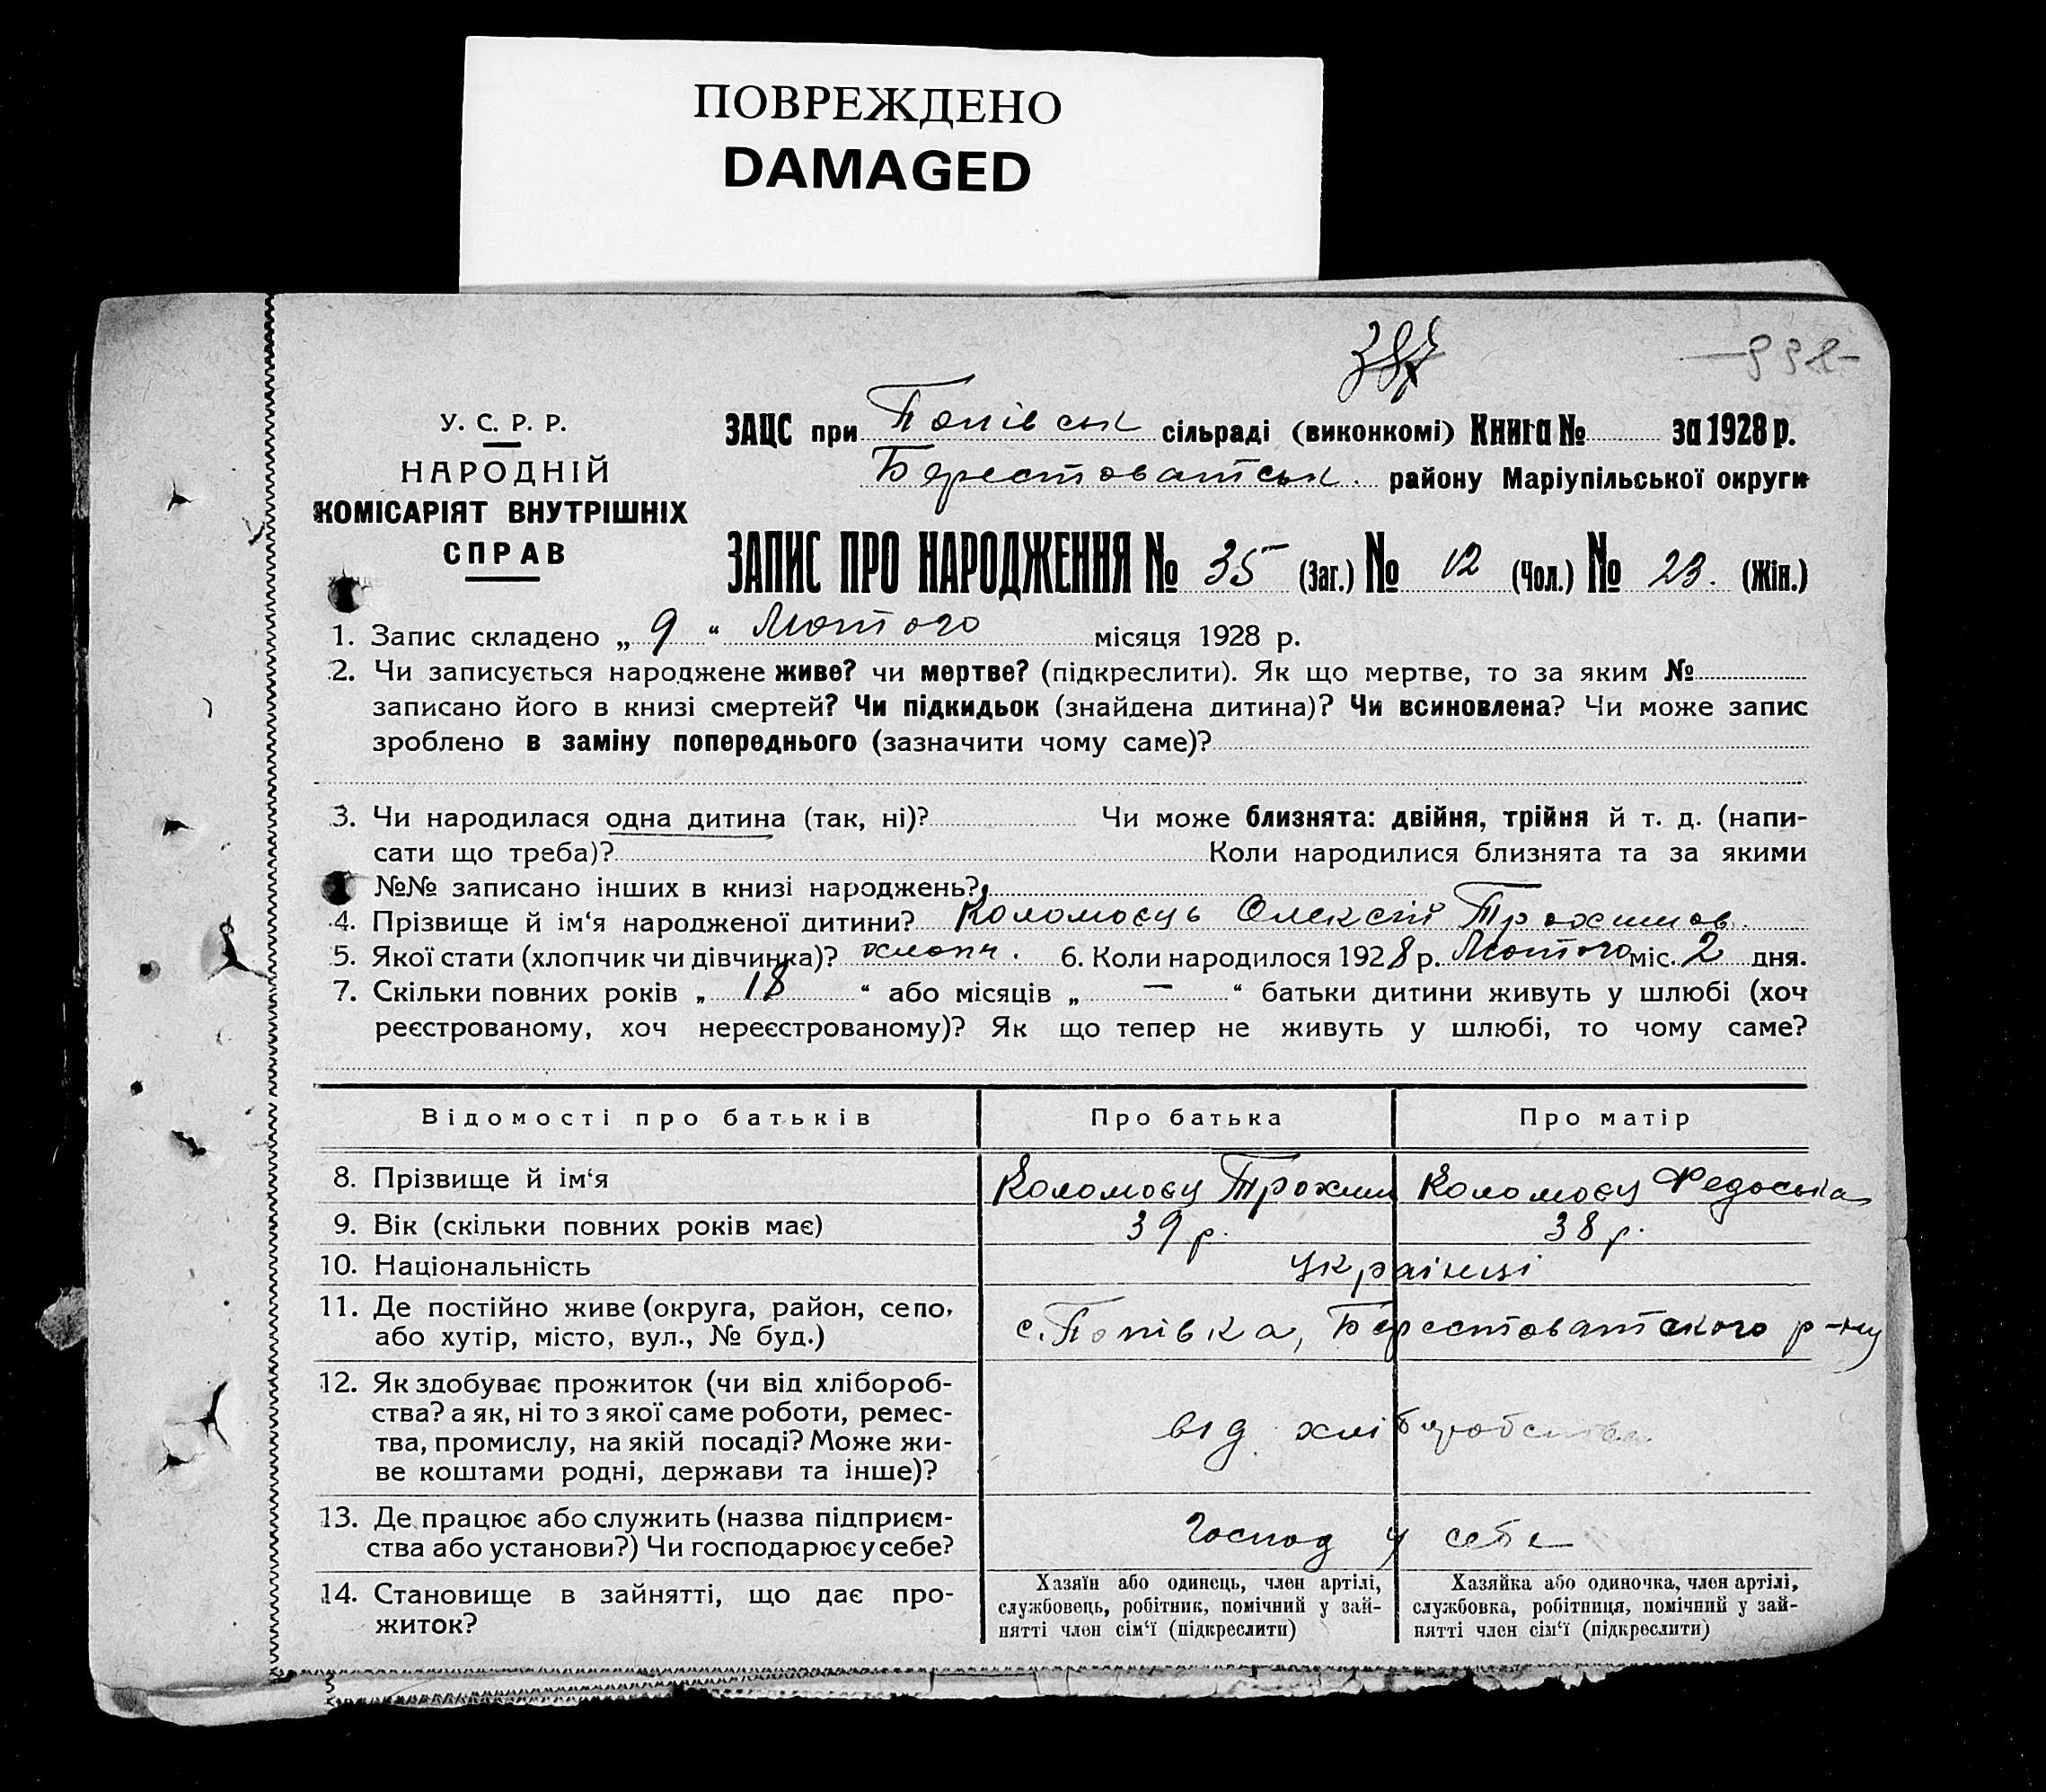 ПОВРЕЖДЕНО
DAMAGED
387
У. С. Р. Р.
НАРОДНІЙ
КОМІСАРІЯТ ВНУТРІШНІХ
СПРАВ
ЗАЦС при Попівськ сільраді (виконкомі) Книга № за 1928 р.
Берестоватськ. району Маріупільської округи
ЗАПИС ПРО НАРОДЖЕННЯ № 35 (Заг.) № 12 (Чол.) № 23. (Жін.)
1. Запис складено „ 9 “ Лютого місяця 1928 р.
2. Чи записується народжене живе? чи мертве? (підкреслити). Як що мертве, то за яким №
записано його в книзі смертей? Чи підкидьок (знайдена дитина)? Чи всиновлена? Чи може запис
зроблено в заміну попереднього (зазначити чому саме)?
3. Чи народилася одна дитина (так, ні)? Чи може близнята: двійня, трійня й т. д. (напи-
сати що треба)? Коли народилися близнята та за якими
№№ записано інших в книзі народжень?
4. Прізвище й ім'я народженої дитини? Коломоєць Олексій Трохимов.
5. Якої стати (хлопчик чи дівчинка)? хлопч. 6. Коли народилося 1928 р. Лютого міс. 2 дня.
7. Скільки повних років „ 18 “ або місяців „ — “ батьки дитини живуть у шлюбі (хоч
реєстрованому, хоч нереєстрованому)? Як що тепер не живуть у шлюбі, то чому саме?
Відомості про батьків Про батька Про матір
8. Прізвище й ім‘я Коломоєц Трохим Коломоєц Федоська
9. Вік (скільки повних років має) 39 р. 38 р.
10. Національність Українці
11. Де постійно живе (округа, район, село,
або хутір, місто, вул., № буд.) с. Попівка, Берестоватского р-ну
12. Як здобуває прожиток (чи від хлібороб-
ства? а як, ні то з якої саме роботи, ремес-
тва, промислу, на якій посаді? Може жи-
ве коштами родні, держави та інше)? від хліборобства
13. Де працює або служить (назва підприєм-
ства або установи?) Чи господарює у себе? Господ у себе
14. Становище в зайнятті, що дає про-
житок?
Хазяїн або одинець, член артілі,
службовець, робітник, помічний у зай-
нятті член сім‘ї (підкреслити)
Хазяйка або одиночка, член артілі,
службовка, робітниця, помічний у зай-
нятті член сім‘ї (підкреслити)